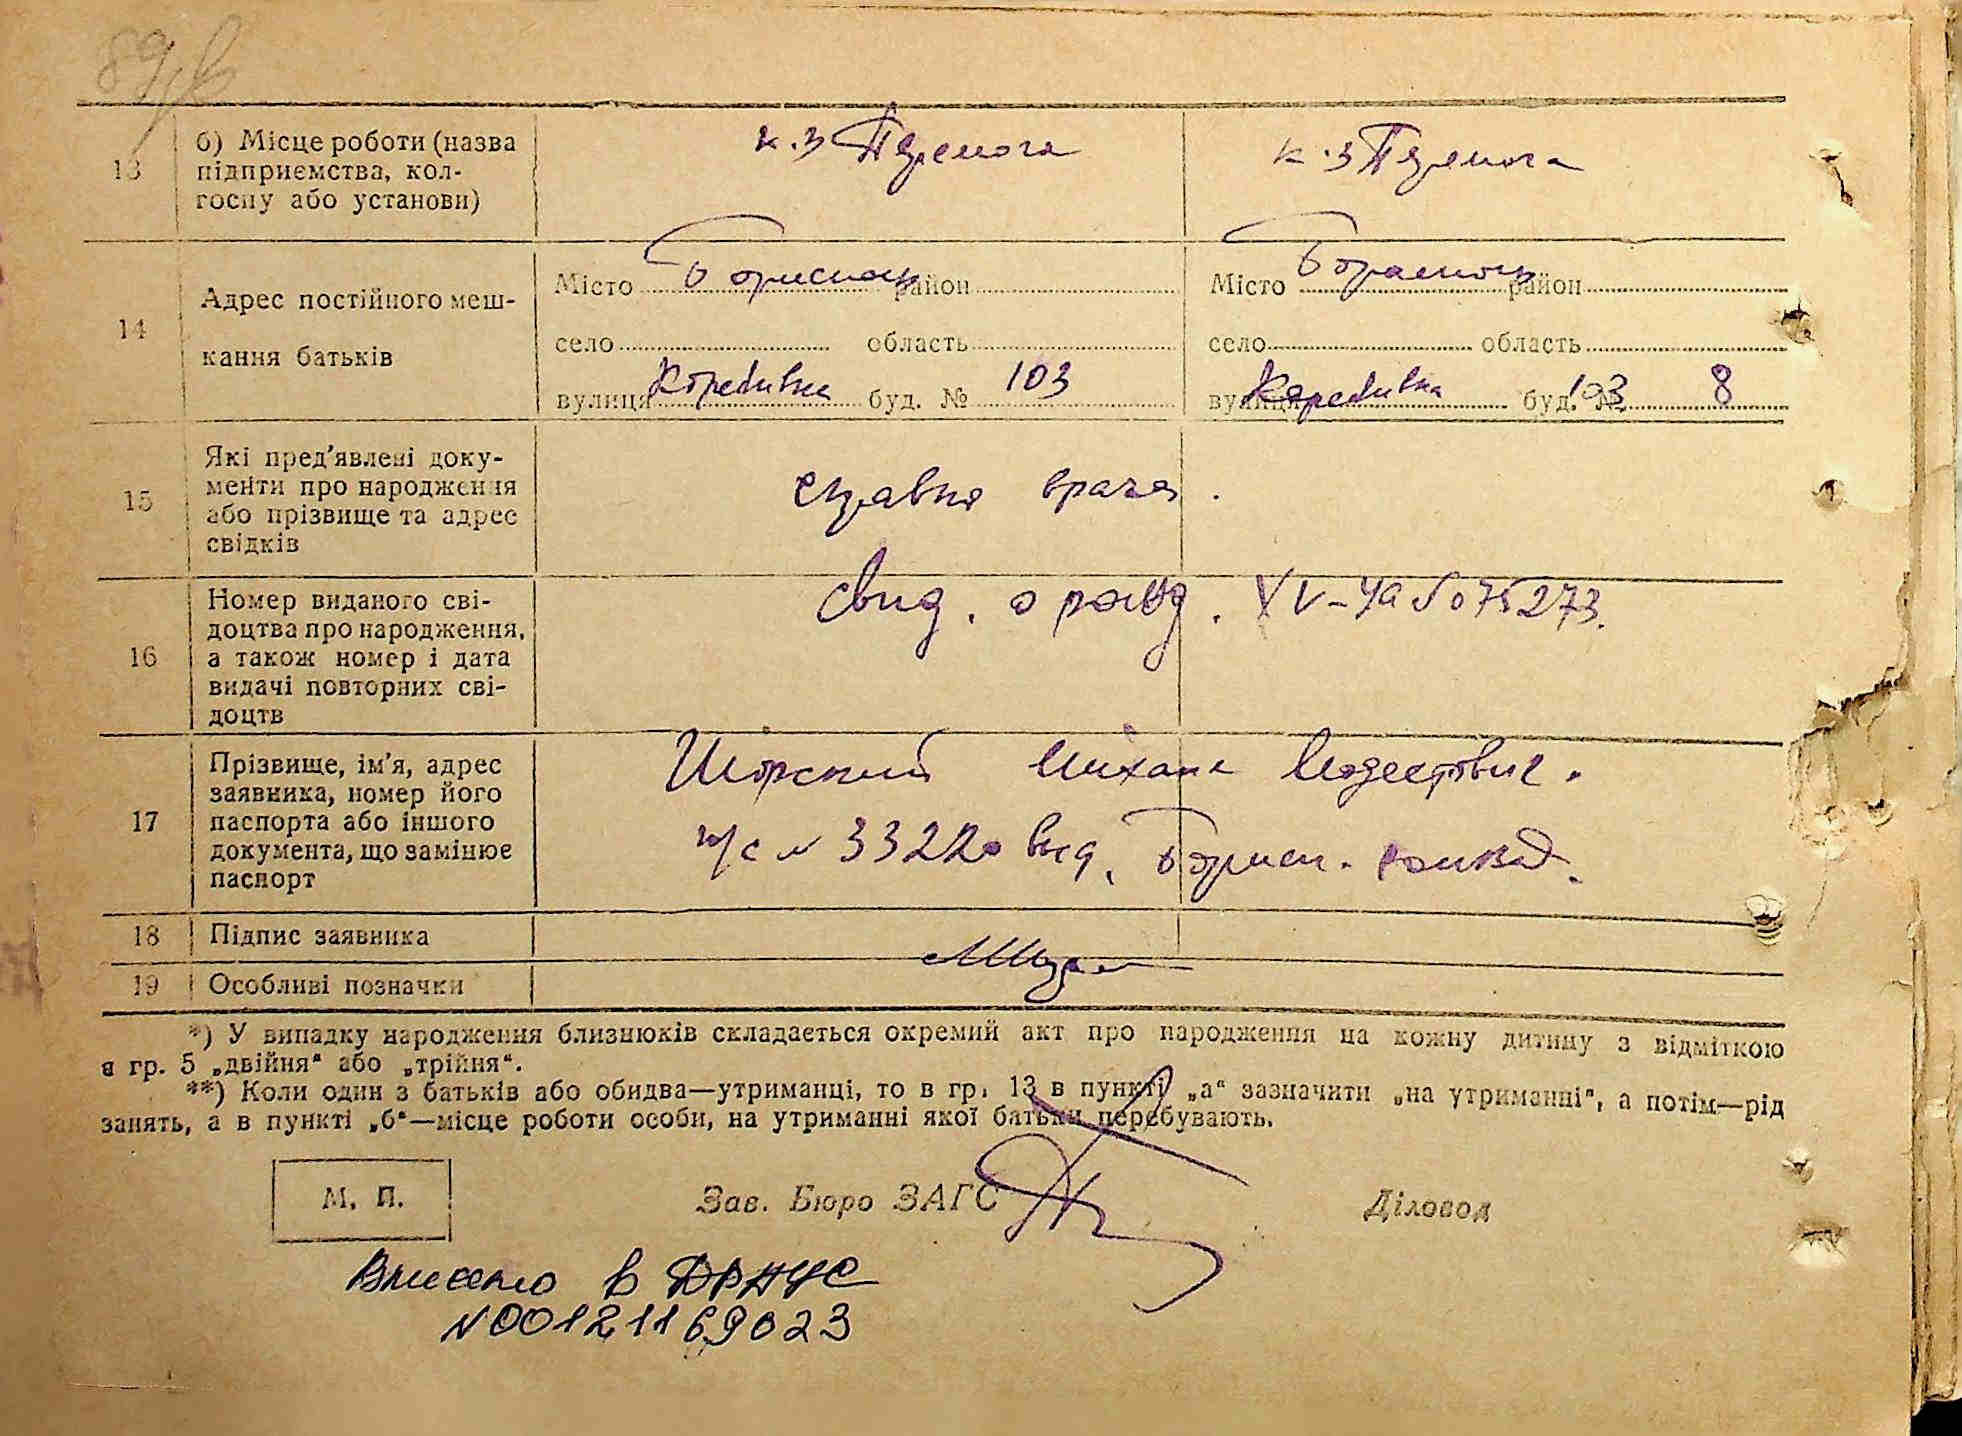 89
13 б) Місце роботи (назва підприємства, колгоспу або установи)
к.з Перемога к.з Перемога
14 Адрес постійного мешкання батьків
Місто Бориспіль район Місто Бориспіль район
село область село область
вулиця буд. № 103 вулиця буд. № 103 8
15 Які пред'явлені документи про народження або прізвище та адрес свідків
справка врача.
16 Номер виданого свідоцтва про народження, а також номер і дата видачі повторних свідоцтв
Свид. о рожд. XV-УА № 075273.
17 Прізвище, ім'я, адрес заявника, номер його паспорта або іншого документа, що замінює паспорт
Шорский Михаил Модестович.
п/с № 33220 выд. Борисп.
18 Підпис заявника
19 Особливі позначки
*) У випадку народження близнюків складається окремий акт про народження на кожну дитину з відміткою
в гр. 5 „двійня“ або „трійня“.
**) Коли один з батьків або обидва—утриманці, то в гр. 13 в пункті „а“ зазначити „на утриманні“, а потім—рід
занять, а в пункті „б“—місце роботи особи, на утриманні якої батьки перебувають.
М. П. Зав. Бюро ЗАГС Діловод
Внесено в ДРАЦС
№00121169023